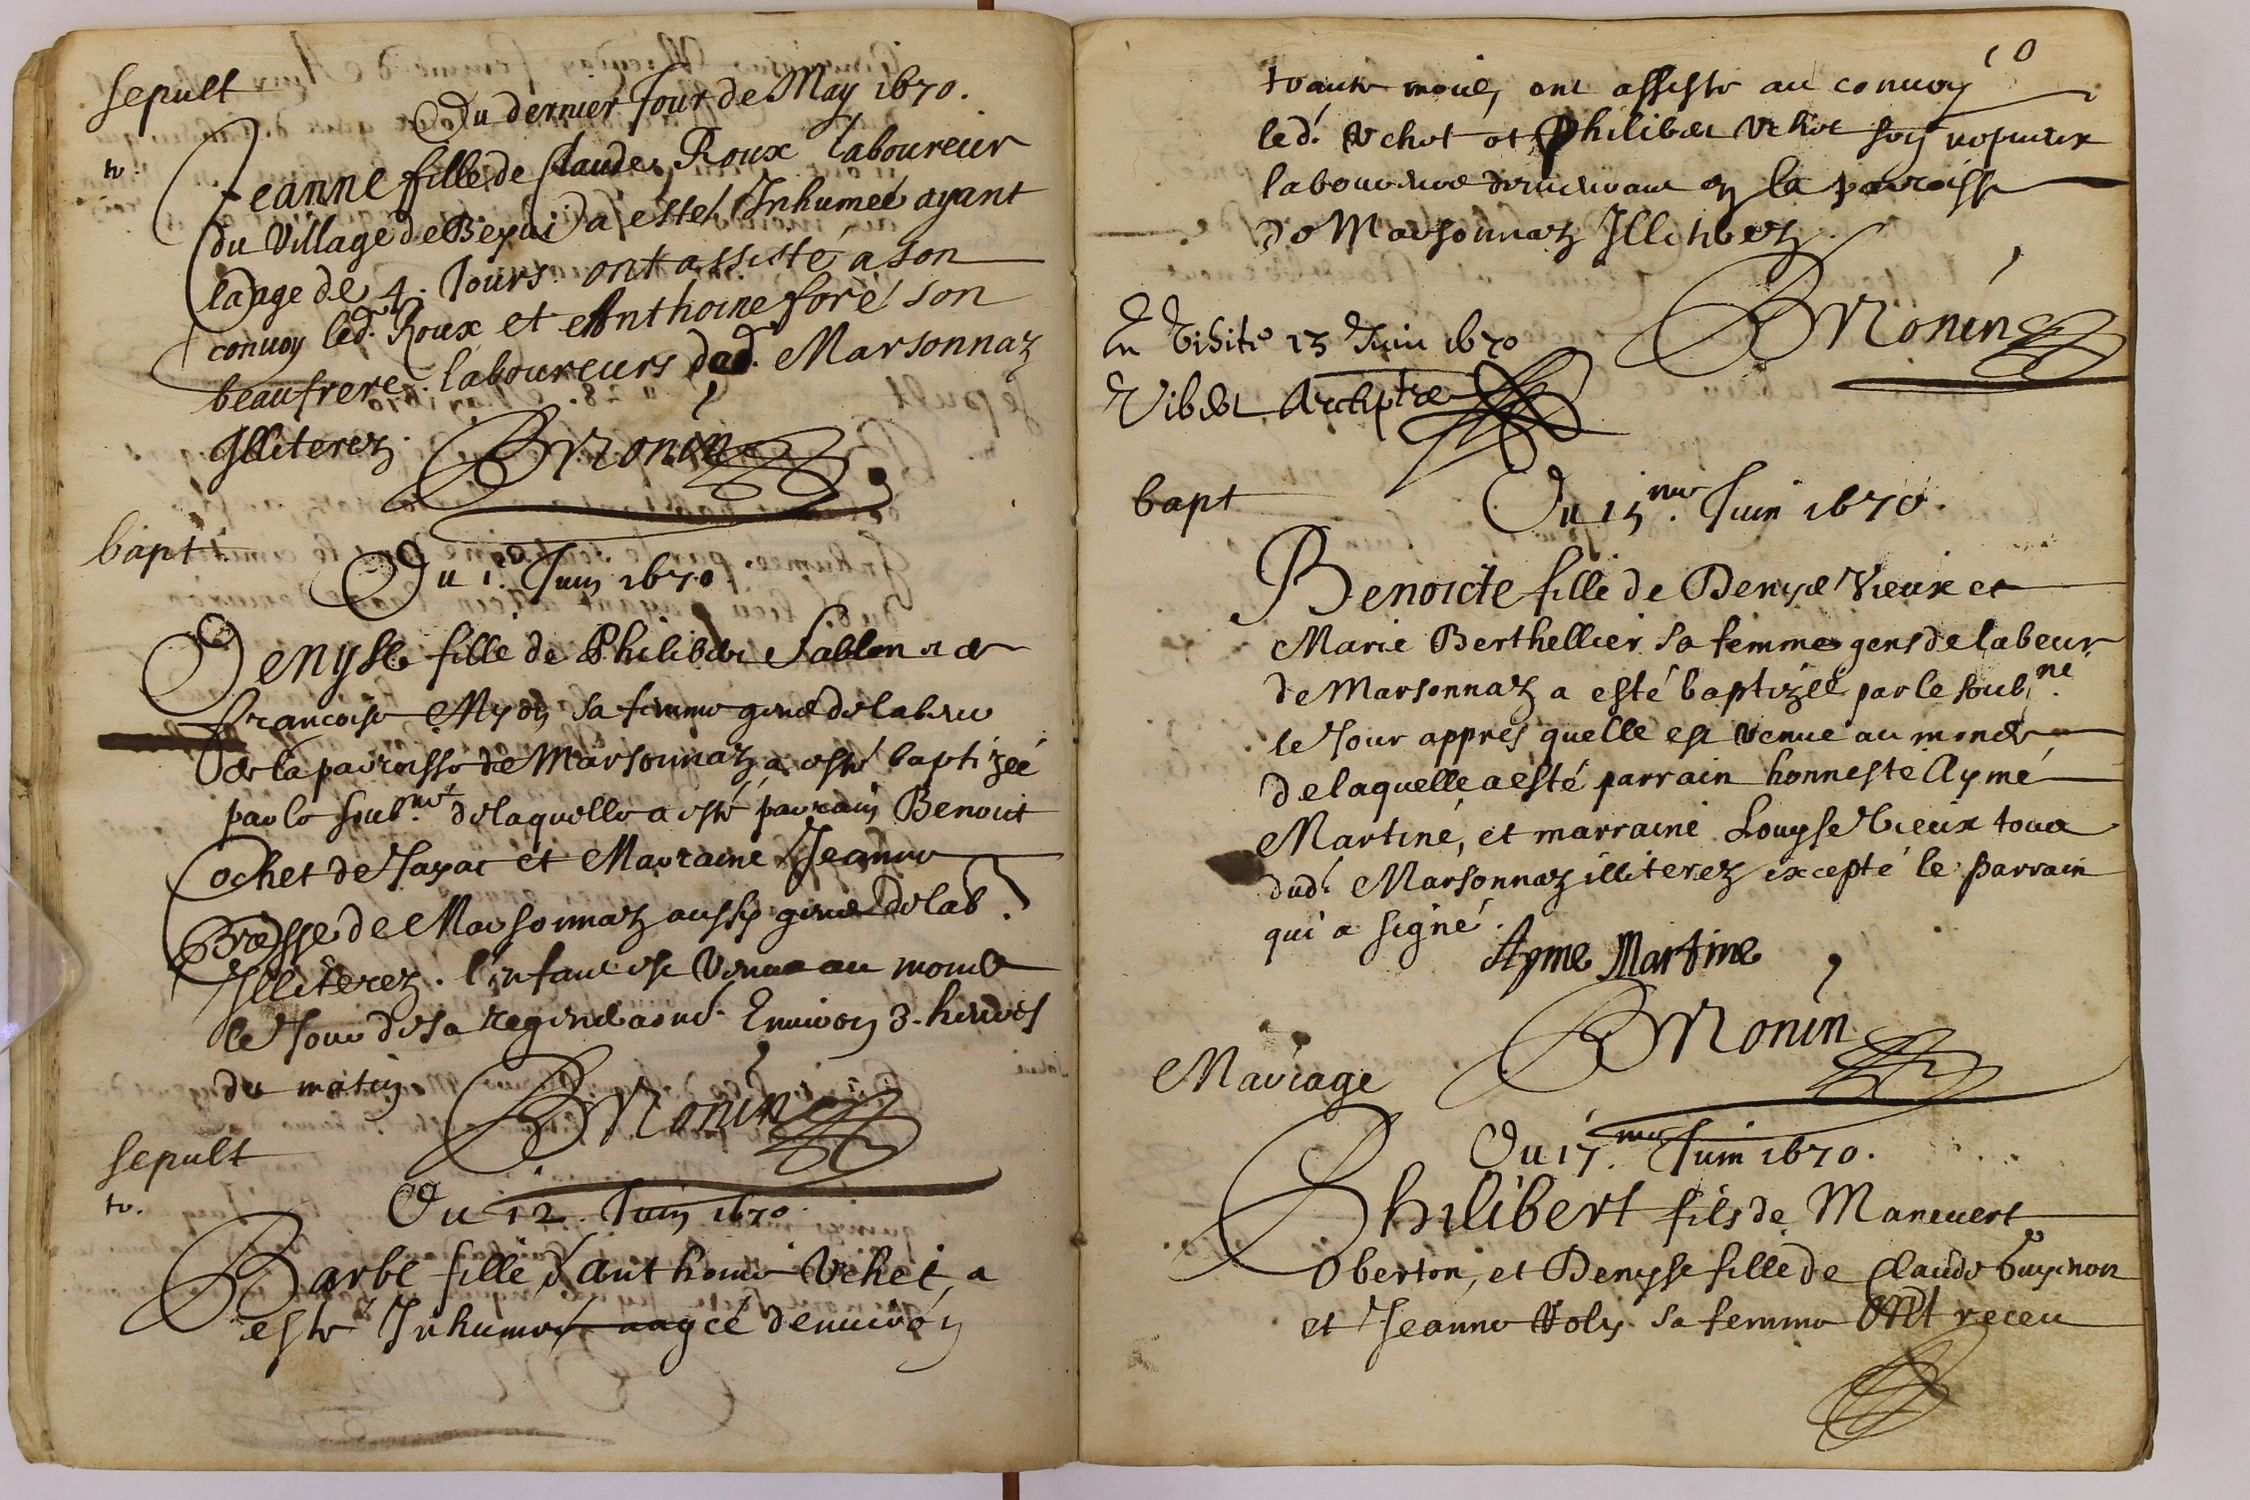 sepult
Du dernier Jour de May 1670.
tr.
Jeanne fille de Claude Roux laboureur
du Village de a esteé Inhumeé ayant
laage de 4. Jours ont assisté a son
convoy led. Roux et Anthoine foré son
beaufrere laboureurs dud. Marsonnaz
Illiterez.
BMonin
bapt
Du 1. Juin 1670.
Denysse fille de Philibert Sablon et de
francoise Mydon sa femme gens de labeur
de la parroisse de Marsonnaz a esté baptizeé
par le soub.né de laquelle a esté parrain Benoit
Cochet de Jayat et Marraine Jeanne
Bresse de Marsonnaz aussy gens de lab.
Illiterez. l'enfant est Venue au monde
le Jour de sa Environ 3. heures
du matin
BMonin
sepult
tr.
Du 12. Juin 1670.
Barbe fille d'anthoine Vchet, a
este Inhumeé aageé denuiron
10
trante mois, ont assiste au convoy
led. Vchot et Philibert Vchot son
laboureurs demeurant en la parroisse
de Marsonnaz Illiterez.
BMonin
En Visite 13 Juin 1670
Vibert Archiptre
bapt
Du 15.me Juin 1670.
Benoicte fille de Denyse Vieux et
Marie Berthellier sa femme gens de labeur
de Marsonnaz a esté baptizeé par le soub.né
le Jour appres quelle est venue au monde
de laquelle a esté parrain honneste Aymé
Martine, et marraine Louyse Vieux tous
dud. Marsonnaz illiterez excepté le parrain
qui a signé.
Ayme Martine
BMonin
Mariage
Du 17.me Juin 1670.
Philibert fils de Maneuert
Oberton, et Denyse fille de Claude Guynon
et Jeanne Voly sa femme ont receu